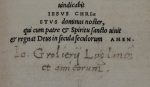 vindicabit
IESVS CHRIS
STVS dominus noster,
qui cum patre & Spiritu sancto viuit
& regnat Deus in secula seculorum AMEN.
Io. Grolierij Lugdunen̄
et amicorum.